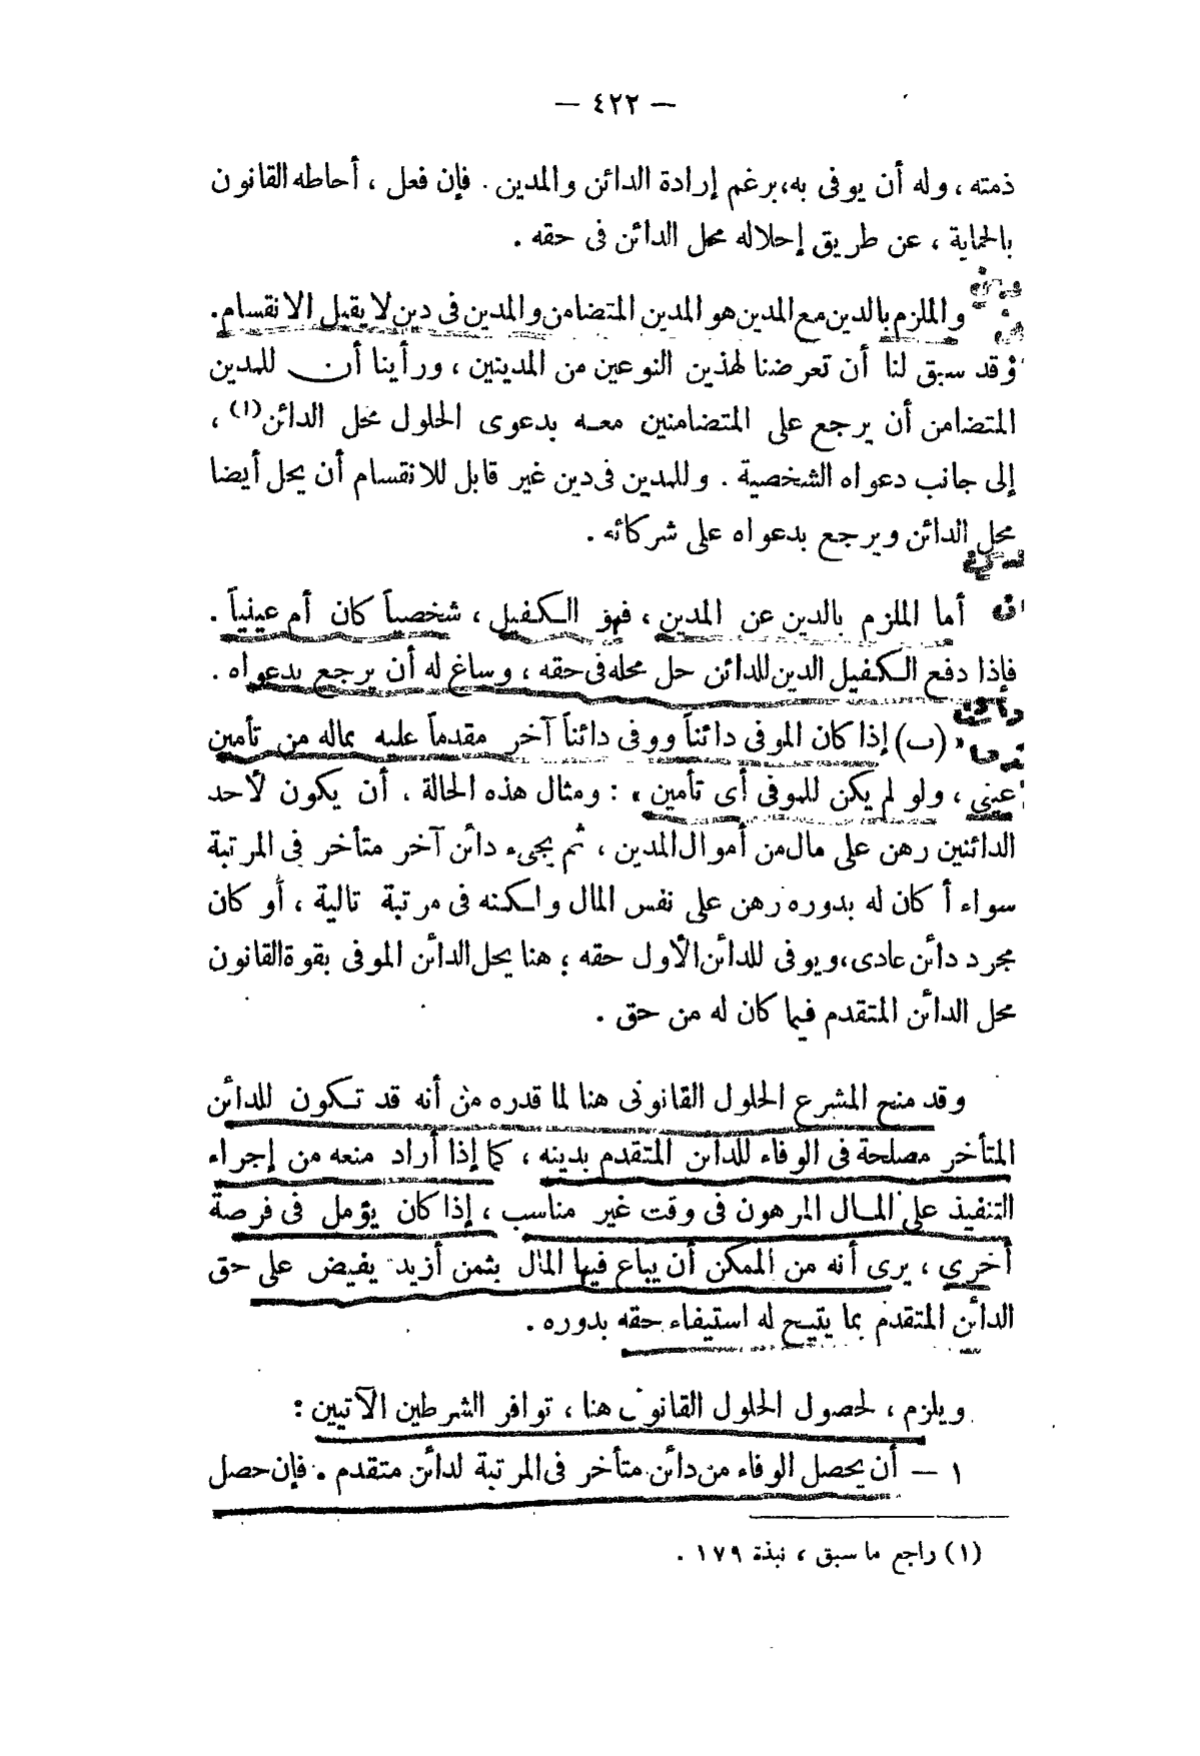 — ٤٢٢ —
ذمته ، وله أن يوفى به، برغم إرادة الدائن والمدين . فإن فعل ، أحاطه القانون
بالحماية ، عن طريق إحلاله محل الدائن فى حقه .
والملزم بالدين مع المدين هو المدين المتضامن والمدين فى دين لا يقبل الانقسام.
وقد سبق لنا أن تعرضنا لهذين النوعين من المدينين ، ورأينا أن للمدين
المتضامن أن يرجع على المتضامنين معه بدعوى الحلول محل الدائن(١) ،
إلى جانب دعواه الشخصية . وللمدين فى دين غير قابل للانقسام أن يحل أيضا
محل الدائن ويرجع بدعواه على شركائه .
أما الملزم بالدين عن المدين ، فهو الكفيل ، شخصياً كان أم عينياً .
فإذا دفع الكفيل الدين للدائن حل محله فى حقه ، وساغ له أن يرجع بدعواه .
(ب) إذا كان الموفى دائناً ووفى دائناً آخر مقدماً عليه بماله من تأمين
عينى ، ولو لم يكن للموفى أى تأمين » : ومثال هذه الحالة ، أن يكون لأحد
الدائنين رهن على مال من أموال المدين ، ثم يجىء دائن آخر متأخر فى المرتبة
سواء أ كان له بدوره رهن على نفس المال ولكنه فى مرتبة تالية ، أو كان
مجرد دائن عادى، ويوفى للدائن الأول حقه ؛ هنا يحل الدائن الموفى بقوة القانون
محل الدائن المتقدم فيما كان له من حق .
وقد منح المشرع الحلول القانونى هنا لما قدره من أنه قد تكون للدائن
المتأخر مصلحة فى الوفاء للدائن المتقدم بدينه ، كما إذا أراد منعه من إجراء
التنفيذ على المال المرهون فى وقت غير مناسب ، إذا كان يؤمل فى فرصة
أخرى ، يرى أنه من الممكن أن يباع فيها المال بثمن أزيد يفيض على حق
الدائن المتقدم بما يتيح له استيفاء حقه بدوره .
ويلزم ، لحصول الحلول القانونى هنا ، توافر الشرطين الآتيين :
١ – أن يحصل الوفاء من دائن متأخر فى المرتبة لدائن متقدم . فإن حصل
(١) راجع ما سبق ، نبذة ١٧٩ .